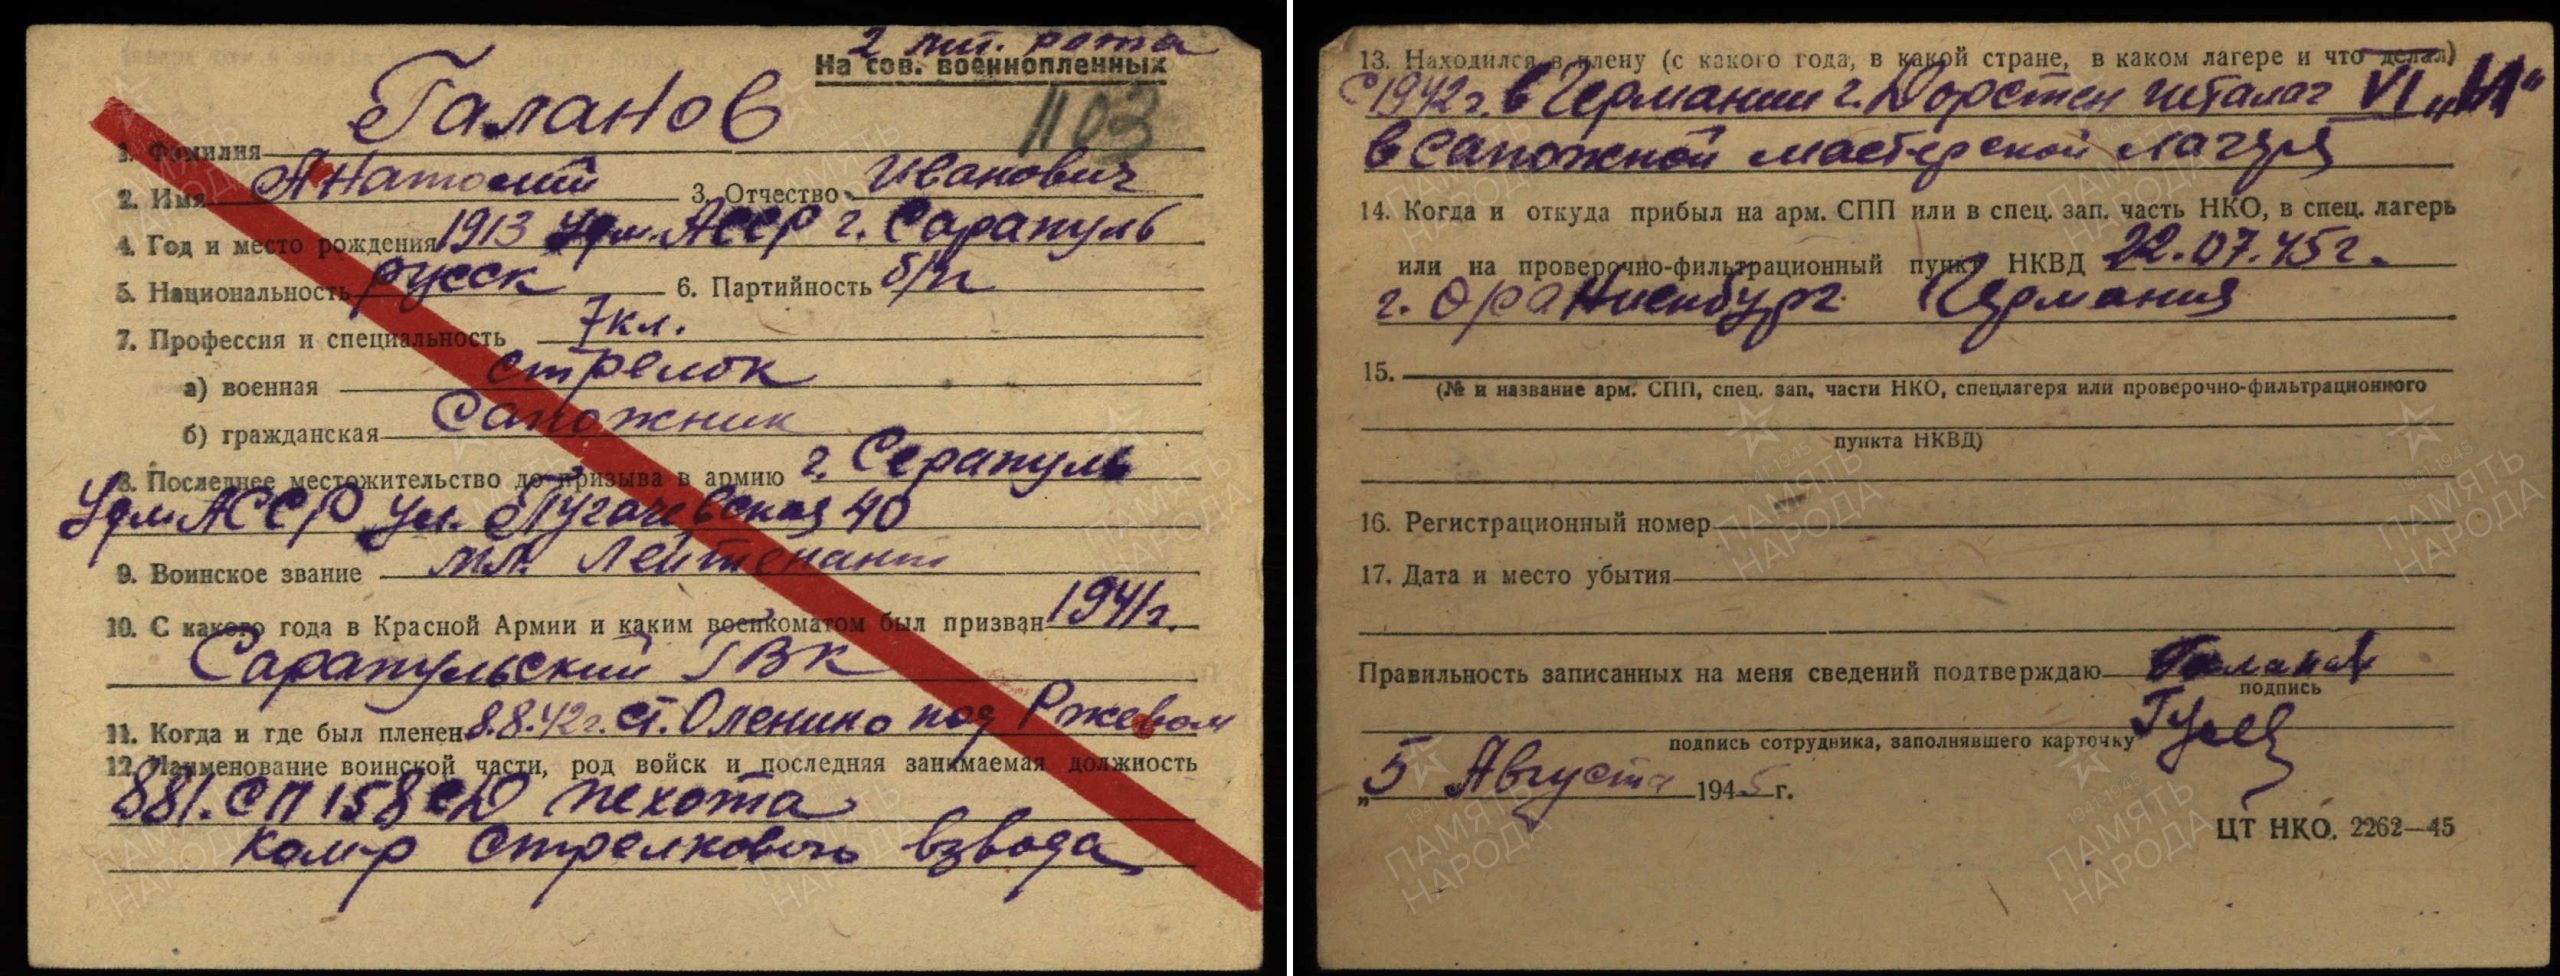 2 лит. рота
На сов. военнопленных
1103
Галанов
1. Фамилия
2. Имя Анатолий 3. Отчество Иванович
4. Год и место рождения 1913 Удм. АССР г. Сарапуль
5. Национальность русск 6. Партийность б/п
7. Профессия и специальность 7 кл.
а) военная стрелок
б) гражданская Сапожник
8. Последнее местожительство до призыва в армию г. Серапуль
Удм АССР ул. Пугачевская 40
9. Воинское звание мл. Лейтенант
10. С какого года в Красной Армии и каким военкоматом был призван 1941 г.
Сарапульский ГВК
11. Когда и где был пленен 8.8.42 г. ст. Оленино под Ржевом
12. Наименование воинской части, род войск и последняя занимаемая должность
881. СП 158 СД пехота
Ком-р стрелкового взвода
13. Находился в плену (с какого года, в какой стране, в каком лагере и что делал)
С 1942 г. в Германии г. Дорстен шталаг VI
в сапожной мастерской лагеря
14. Когда и откуда прибыл на арм. СПП или в спец. зап. часть НКО, в спец. лагерь
или на проверочно-фильтрационный пункт НКВД 22.07.45 г.
г. Ораниенбург Германия
15.
(№ и название арм. СПП, спец. зап. части НКО, спецлагеря или проверочно-фильтрационного
пункта НКВД)
16. Регистрационный номер
17. Дата и место убытия
Правильность записанных на меня сведений подтверждаю Галанов
подпись
подпись сотрудника, заполнявшего карточку
„5 Августа 1945 г.
ЦТ НКО. 2262—45
1941-1945
ПАМЯТЬ
НАРОДА